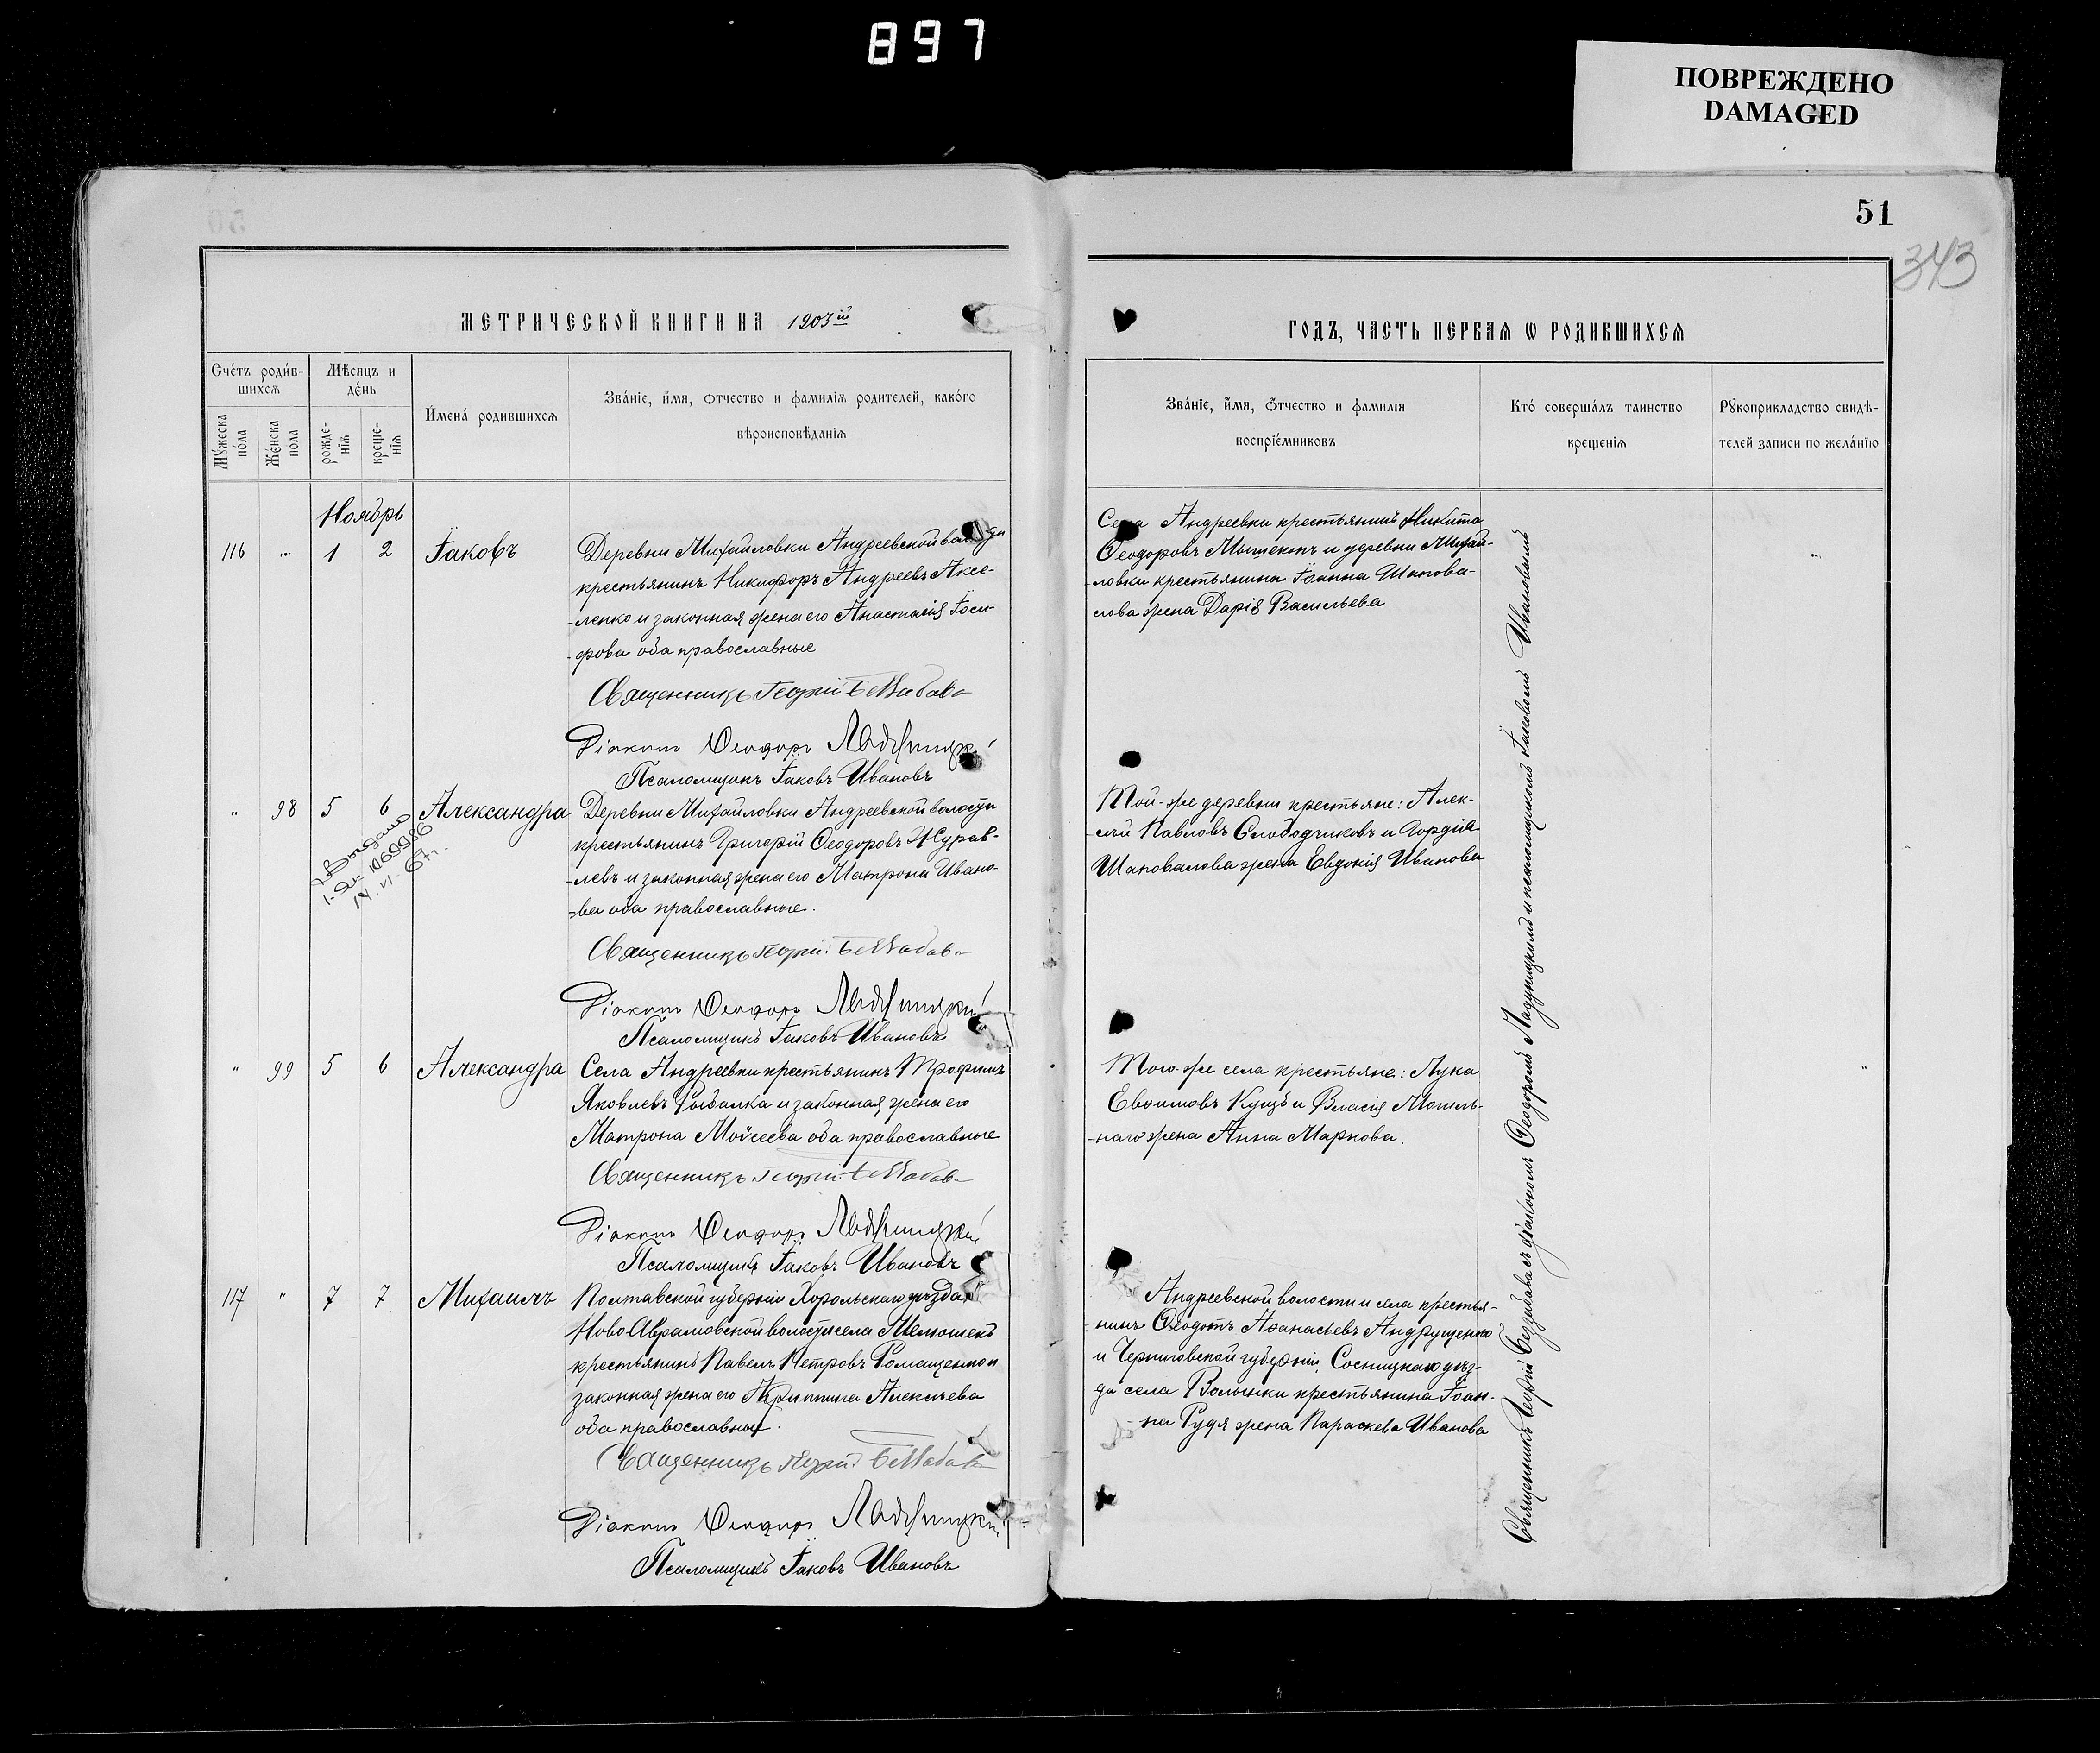 897
ПОВРЕЖДЕНО
DAMAGED
51
343
МЕТРИЧЕСКОЙ КНИГИ НА 1903ій
ГОДЪ, ЧАСТЬ ПЕРВАЯ Ѡ РОДИВШИХСЯ
Счетъ родившихся
Мужеска пола
Женска пола
Мѣсяцъ и день
рожденія
крещенія
Имена родившихся
Званіе, имя, отчество и фамилія родителей, какого
вѣроисповѣданія
Званіе, имя, отчество и фамилія
воспріемниковъ
Кто совершалъ таинство
крещенія
Рукоприкладство свидѣ-
телей записи по желанію
Ноябрь
116 " 1 2 Іаковъ
Деревни Михайловки Андреевской волости
крестьянинъ Никифоръ Андреевъ Аксе-
-ленко и законная жена его Анастасія Іоси-
-фова оба православные
Священникъ Георгій
Діаконъ Ѳеодоръ Ладухицкій
Псаломщикъ Іаковъ Ивановъ
Села Андреевки крестьянинъ Никита
Ѳеодоровъ и деревни Михай-
-ловки крестьянина Іоанна Шапова-
-лова жена Дарія Васильева
" 98 5 6 Александра
Деревни Михайловки Андреевской волости
крестьянинъ Григорій Ѳеодоровъ Журав-
-левъ и законная жена его Матрона Ивано-
-ва оба православные.
Священникъ Георгій
Діаконъ Ѳеодоръ Ладухицкій
Псаломщикъ Іаковъ Ивановъ
Той-же деревни крестьяне: Алек-
-сѣй Павловъ Слободчиковъ и Гордія
Шаповалова жена Евдокія Иванова
Выдано
14. VI. 67г.
" 99 5 6 Александра
Села Андреевки крестьянинъ Трофимъ
Яковлевъ Рыбалка и законная жена его
Матрона Моѵсеева оба православные
Священникъ Георгій
Діаконъ Ѳеодоръ Ладухицкій
Псаломщикъ Іаковъ Ивановъ
Того-же села крестьяне: Лука
Евѳимовъ Куцъ и Власія Могиль-
-наго жена Анна Маркова.
117 " 7 7 Михаилъ
Полтавской губерніи Хорольскаго уѣзда
Ново Аврамовской волости села Мелюшекъ
крестьянинъ Павелъ Петровъ Ромащенко и
законная жена его Агриппина Алексѣева
оба православные.
Священникъ Георгій
Діаконъ Ѳеодоръ Ладухицкій
Псаломщикъ Іаковъ Ивановъ
Андреевской волости и села крестья-
-нинъ Ѳеодотъ Аѳанасьевъ Андрущенко
и Черниговской губерніи, Сосницкаго уѣз-
да села Волынки крестьянина Іоан-
-на Рудя жена Параскева Иванова
Священникъ Георгій съ діакономъ Ѳеодоромъ Ладухицкимъ и псаломщикомъ Іаковомъ Ивановымъ